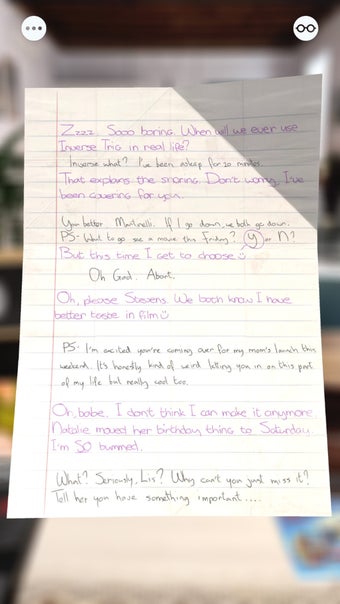 Zzzz. Sooo boring. When will we ever use
Inverse Trig in real life?
Inverse what? I've been asleep for 20 minutes.
That explains the snoring. Don't worry, I've
been covering for you.
You better, Martinelli. If I go down, we both go down.
PS- Want to go see a movie this Friday? y or n?
But this time I get to choose
Oh God. Abort.
Oh, please Stevens. We both know I have
better taste in film
PS- I'm excited you're coming over for my mom's launch this
weekend. It's honestly kind of weird letting you in on this part
of my life but really cool too.
Oh, babe. I don't think I can make it anymore.
Natalie moved her birthday thing to Saturday.
I'm SO bummed.
What? Seriously, Lis? Why can't you just miss it?
Tell her you have something important....